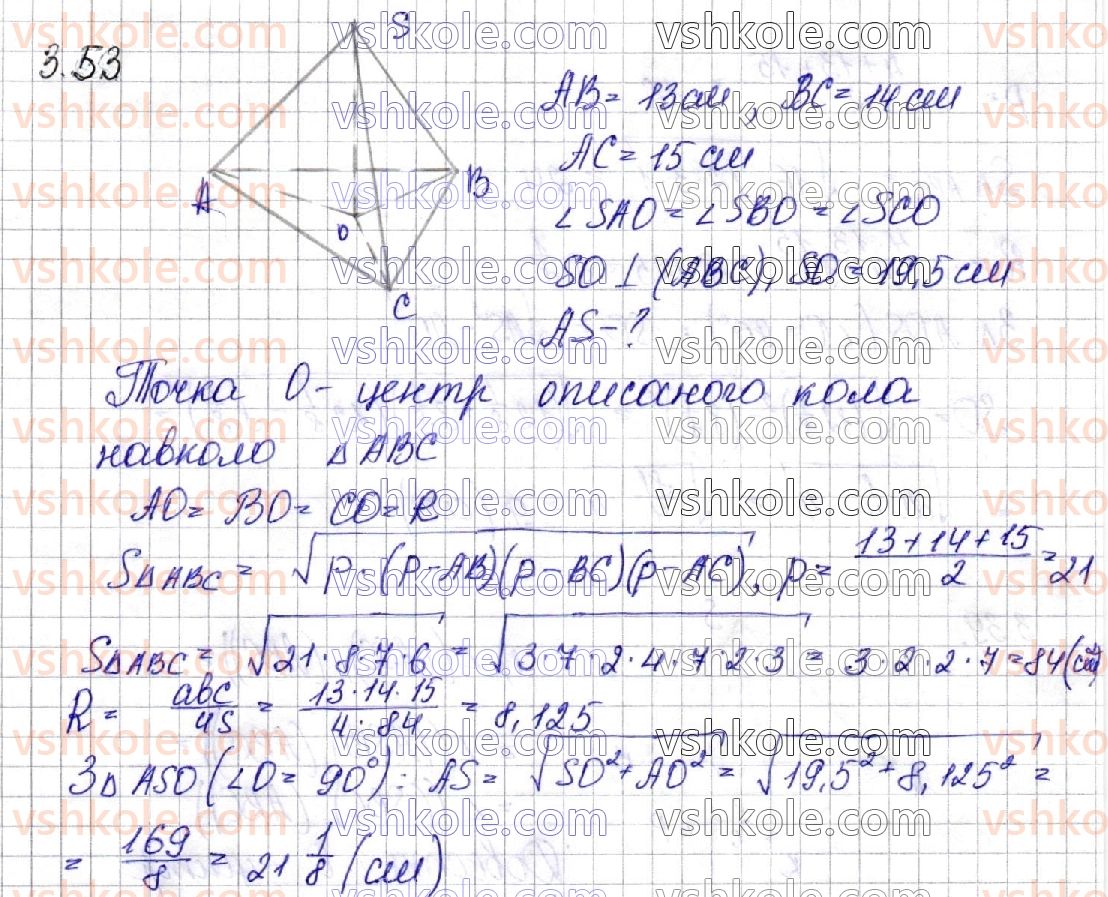 3.53
S
A
B
O
C
AB = 13 см, BC = 14 см
AC = 15 см
∠SAO = ∠SBO = ∠SCO
SO ⊥ (ABC), SO = 19,5 см
AS - ?
Точка O - центр описаного кола
навколо △ABC
AO = BO = CO = R
S△ABC = √(p·(p-AB)(p-BC)(p-AC)), p = (13+14+15)/2 = 21
S△ABC = √(21·8·7·6) = √(3·7·2·4·7·2·3) = 3·2·2·7 = 84 (см²)
R = abc/4S = (13·14·15)/(4·84) = 8,125
З △ASO (∠O = 90°): AS = √(SO² + AO²) = √(19,5² + 8,125²) =
= 169/8 = 21 1/8 (см)
vshkole.com